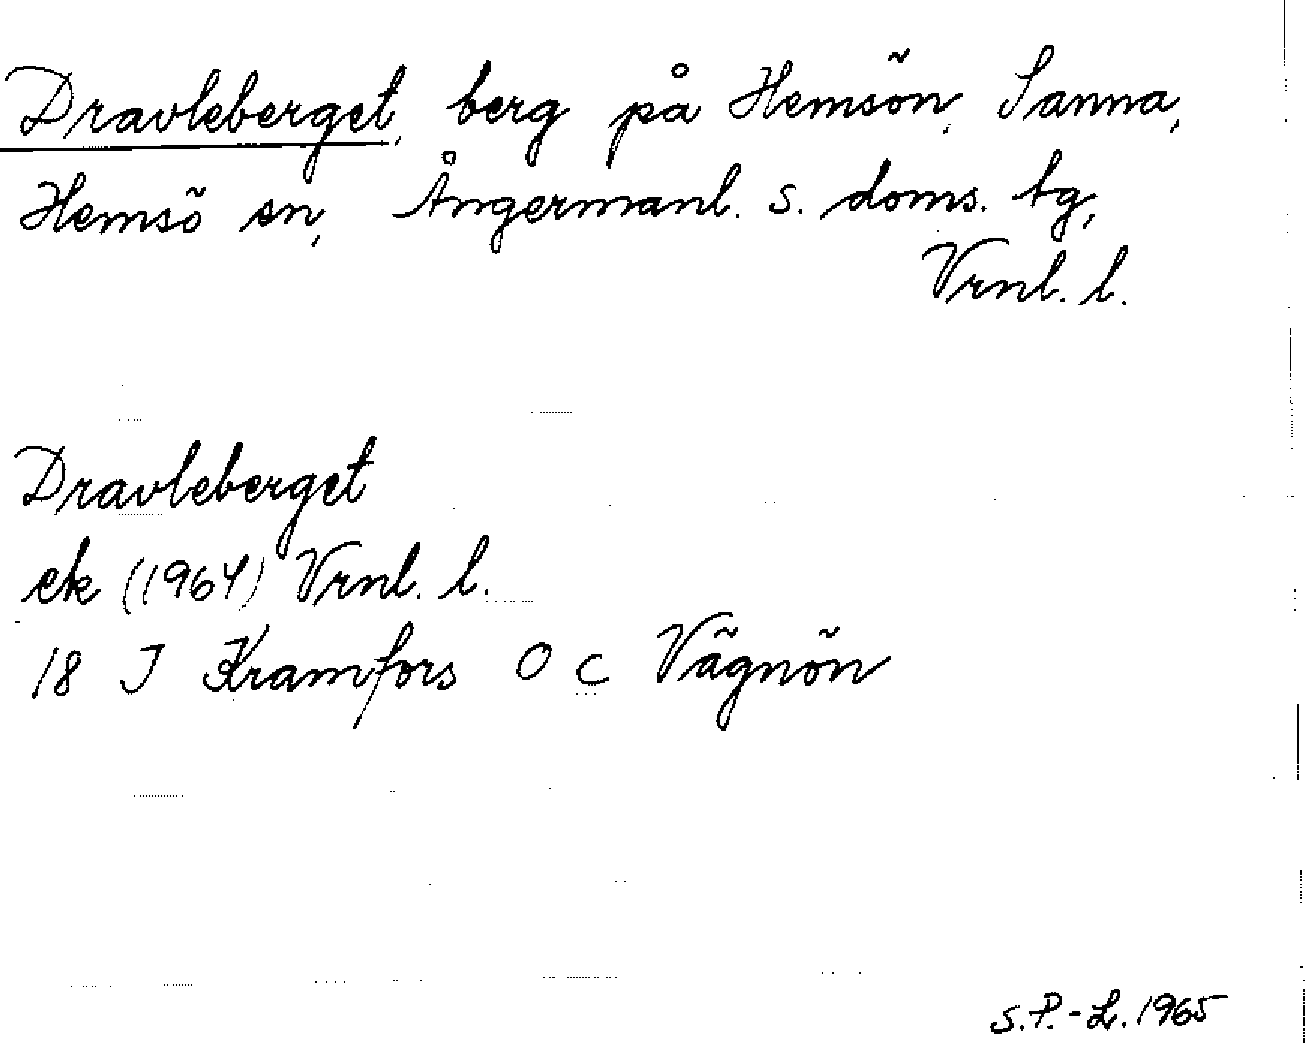 Dravleberget, berg på Hemsön, Sanna,
Hemsö sn, Ångermanl. s. doms. tg,
Vrnl. l.
Dravleberget
ek (1964) Vrnl. l.
18 J Kramfors O c Vägnön
S.P.-L. 1965